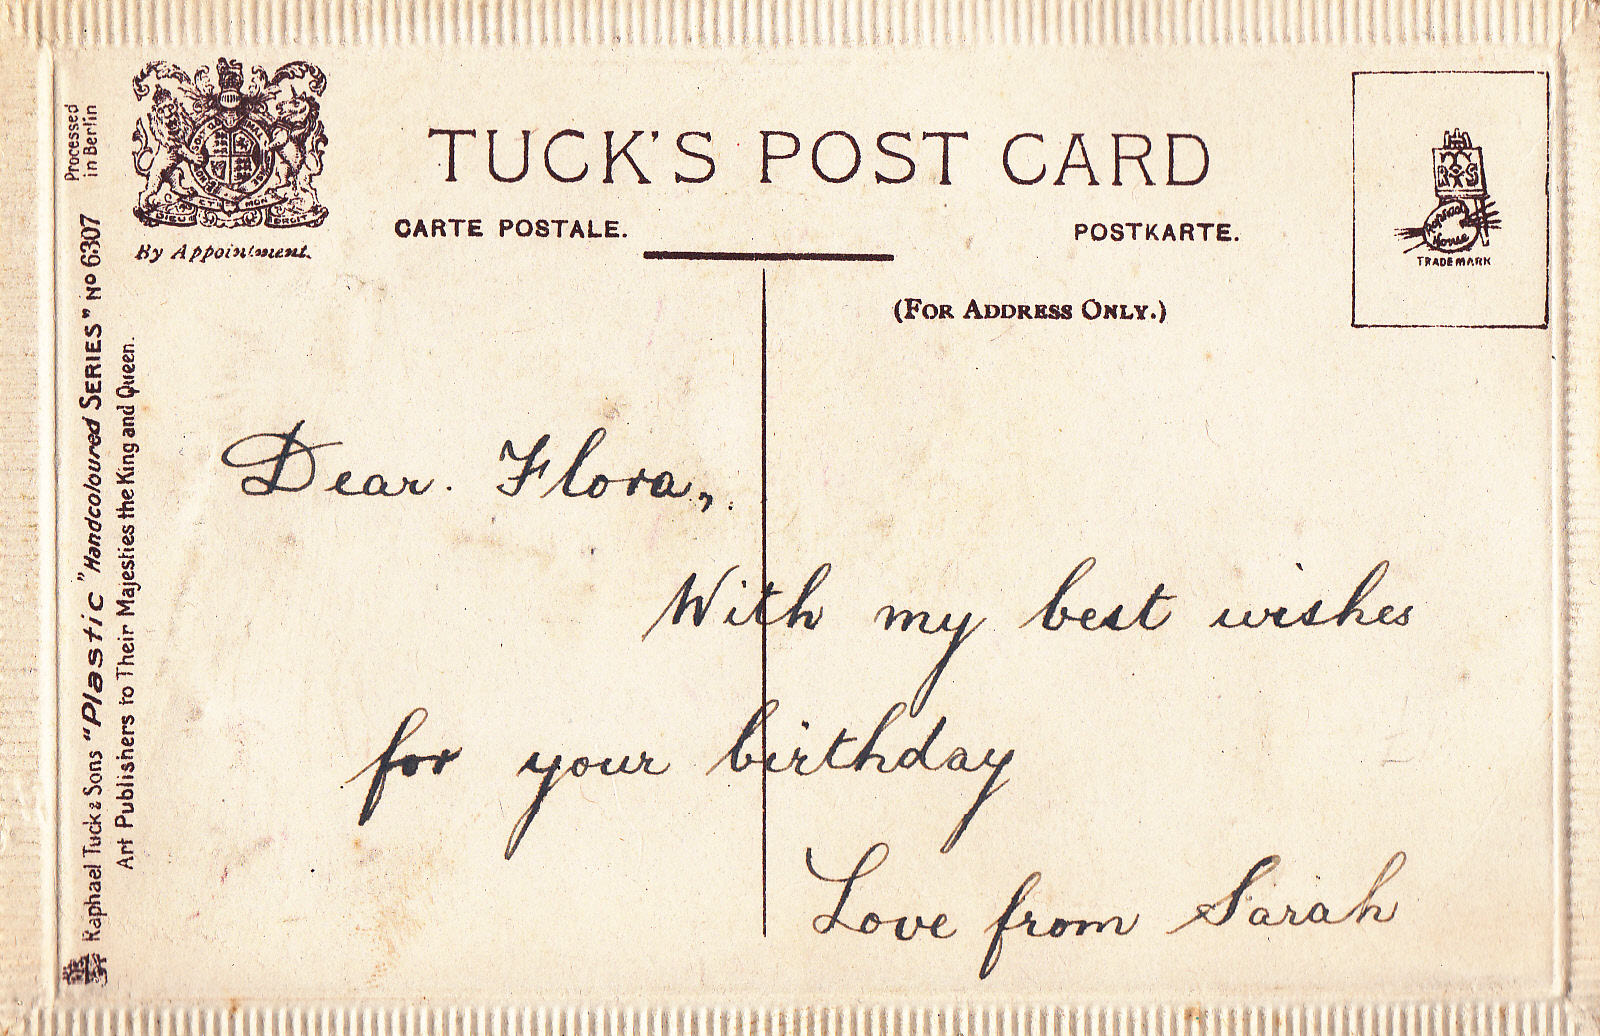 Processed
in Berlin
Raphael Tuck & Sons "Plastic" Handcoloured SERIES" No 6307
Art Publishers to Their Majesties the King and Queen.
DIEU ET MON DROIT
By Appointment.
TUCK'S POST CARD
CARTE POSTALE.
POSTKARTE.
(FOR ADDRESS ONLY.)
Raphael
House
TRADE MARK
Dear. Flora,
With my best wishes
for your birthday
Love from Sarah